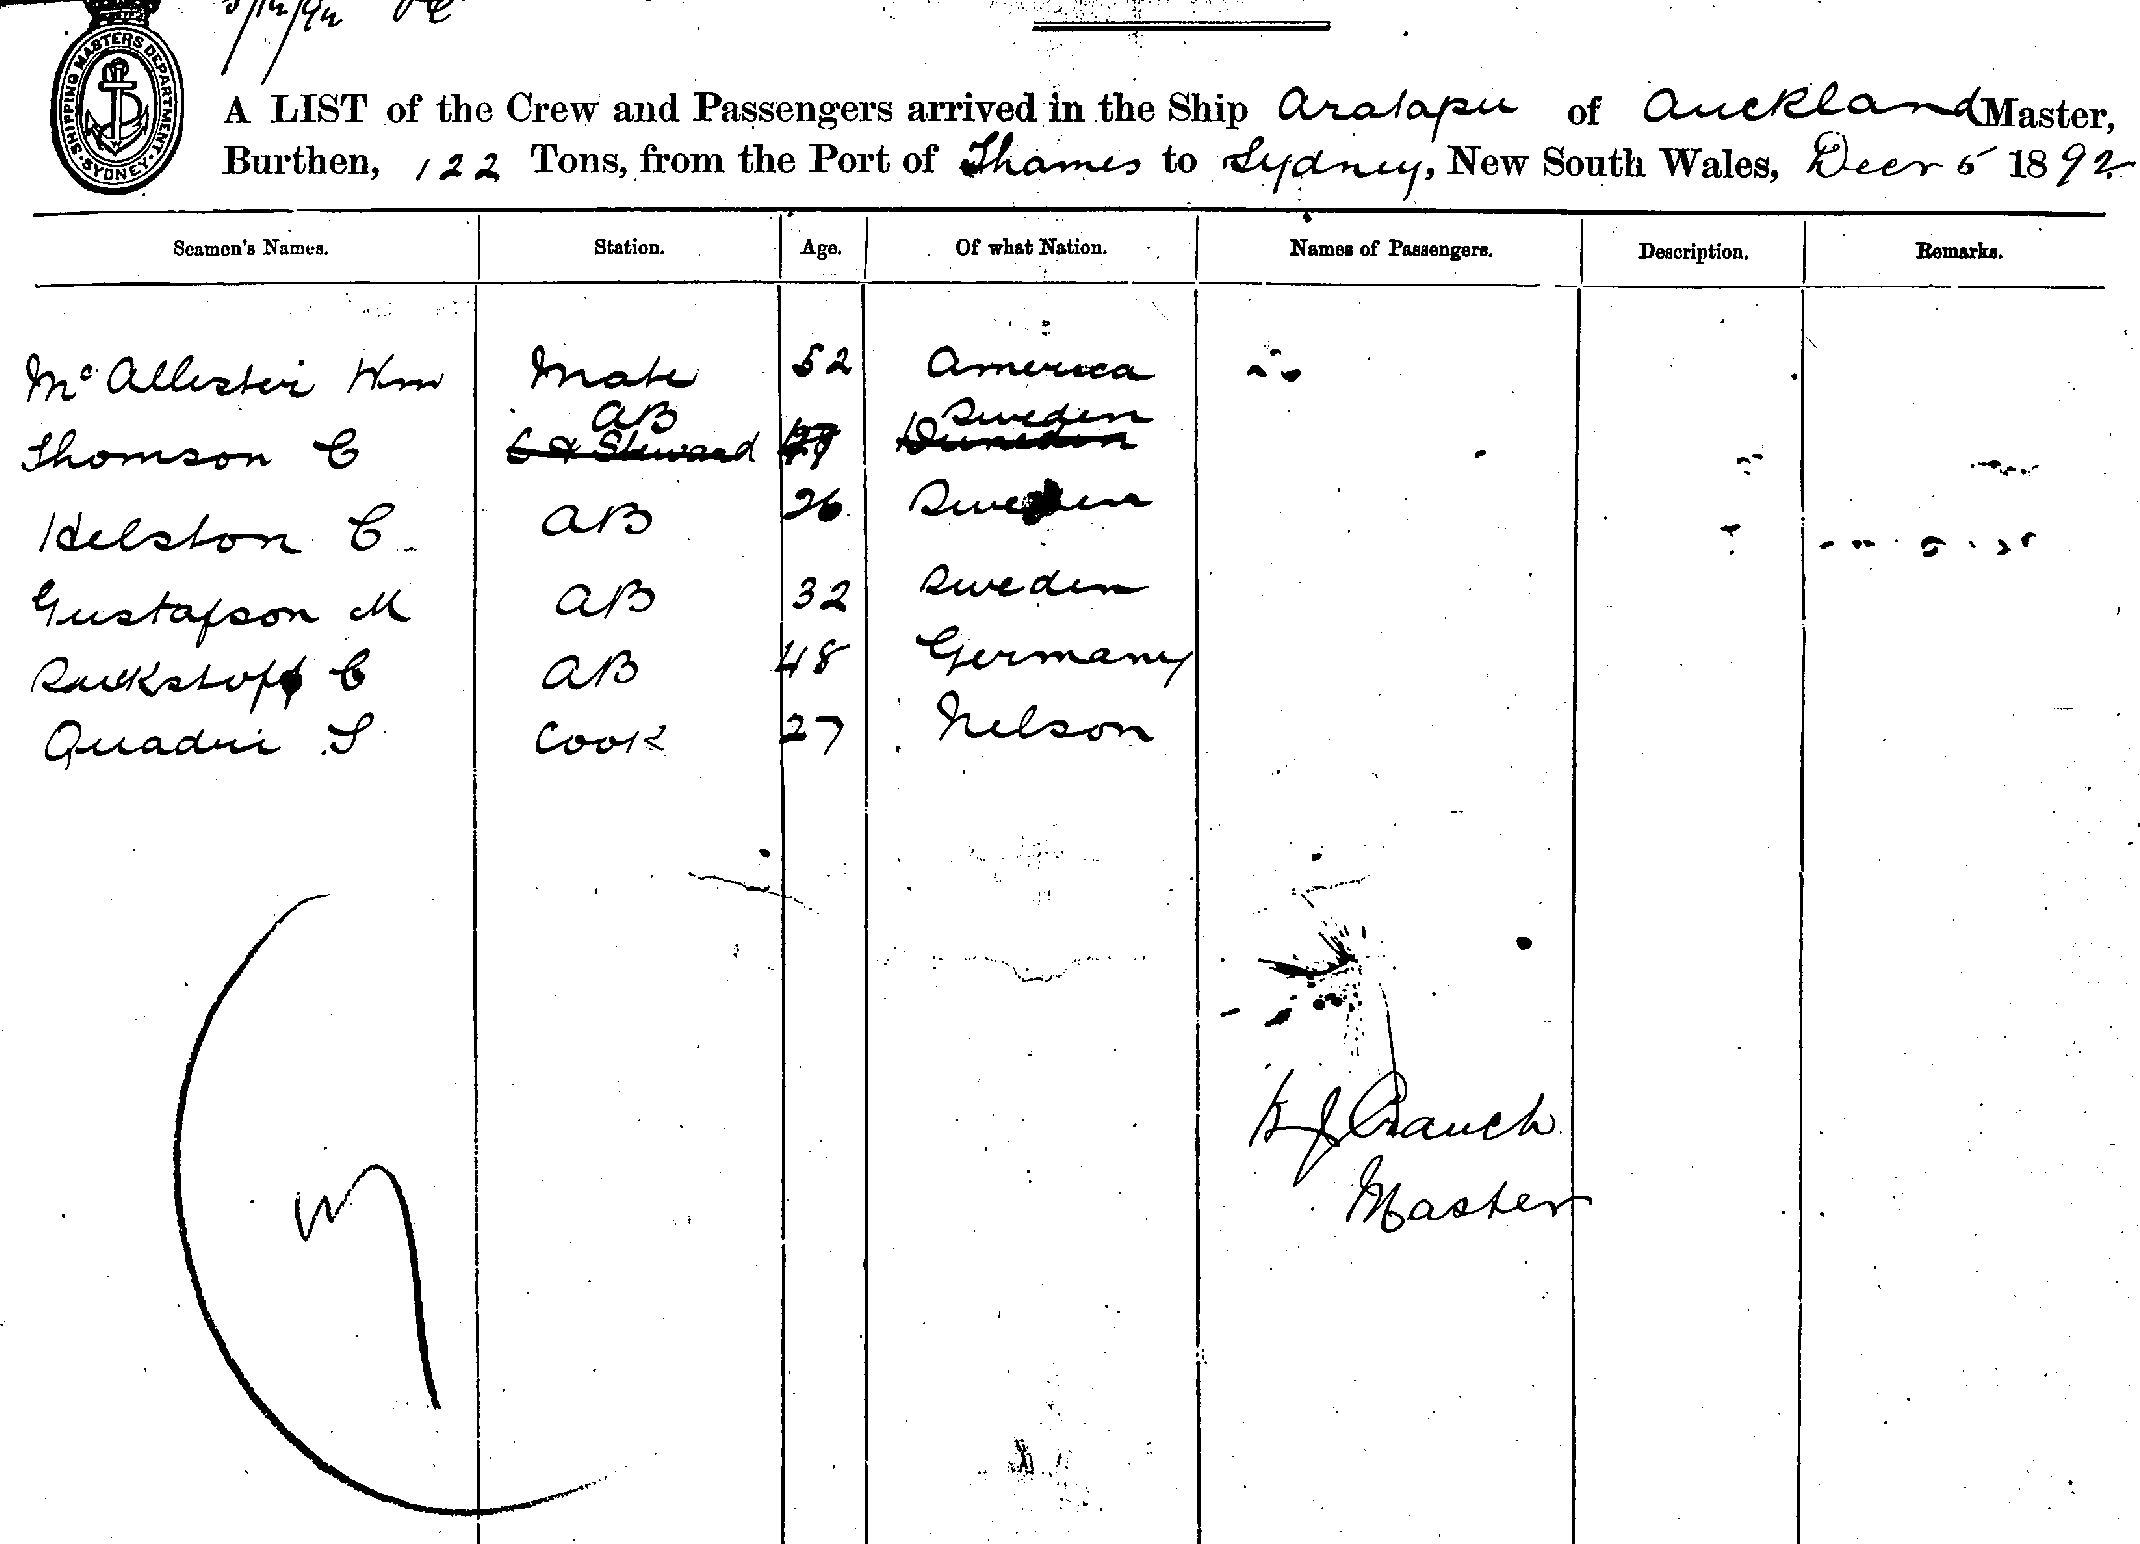 5/12/92
SHIPPING MASTERS DEPARTMENT
SYDNEY
A LIST of the Crew and Passengers arrived in the Ship Aratapu of Auckland Master,
Burthen, 122 Tons, from the Port of Thames to Sydney, New South Wales, Decr 5 1892
Seamen's Names. Station. Age. Of what Nation. Names of Passengers. Description. Remarks.
Mc Allester Wm Mate 52 America
AB Sweden
Thomson C C & Steward 29 Dunedin
Helston C AB 26 Sweden
Gustafson M AB 32 Sweden
C AB 48 Germany
Quadri S Cook 27 Nelson
Master